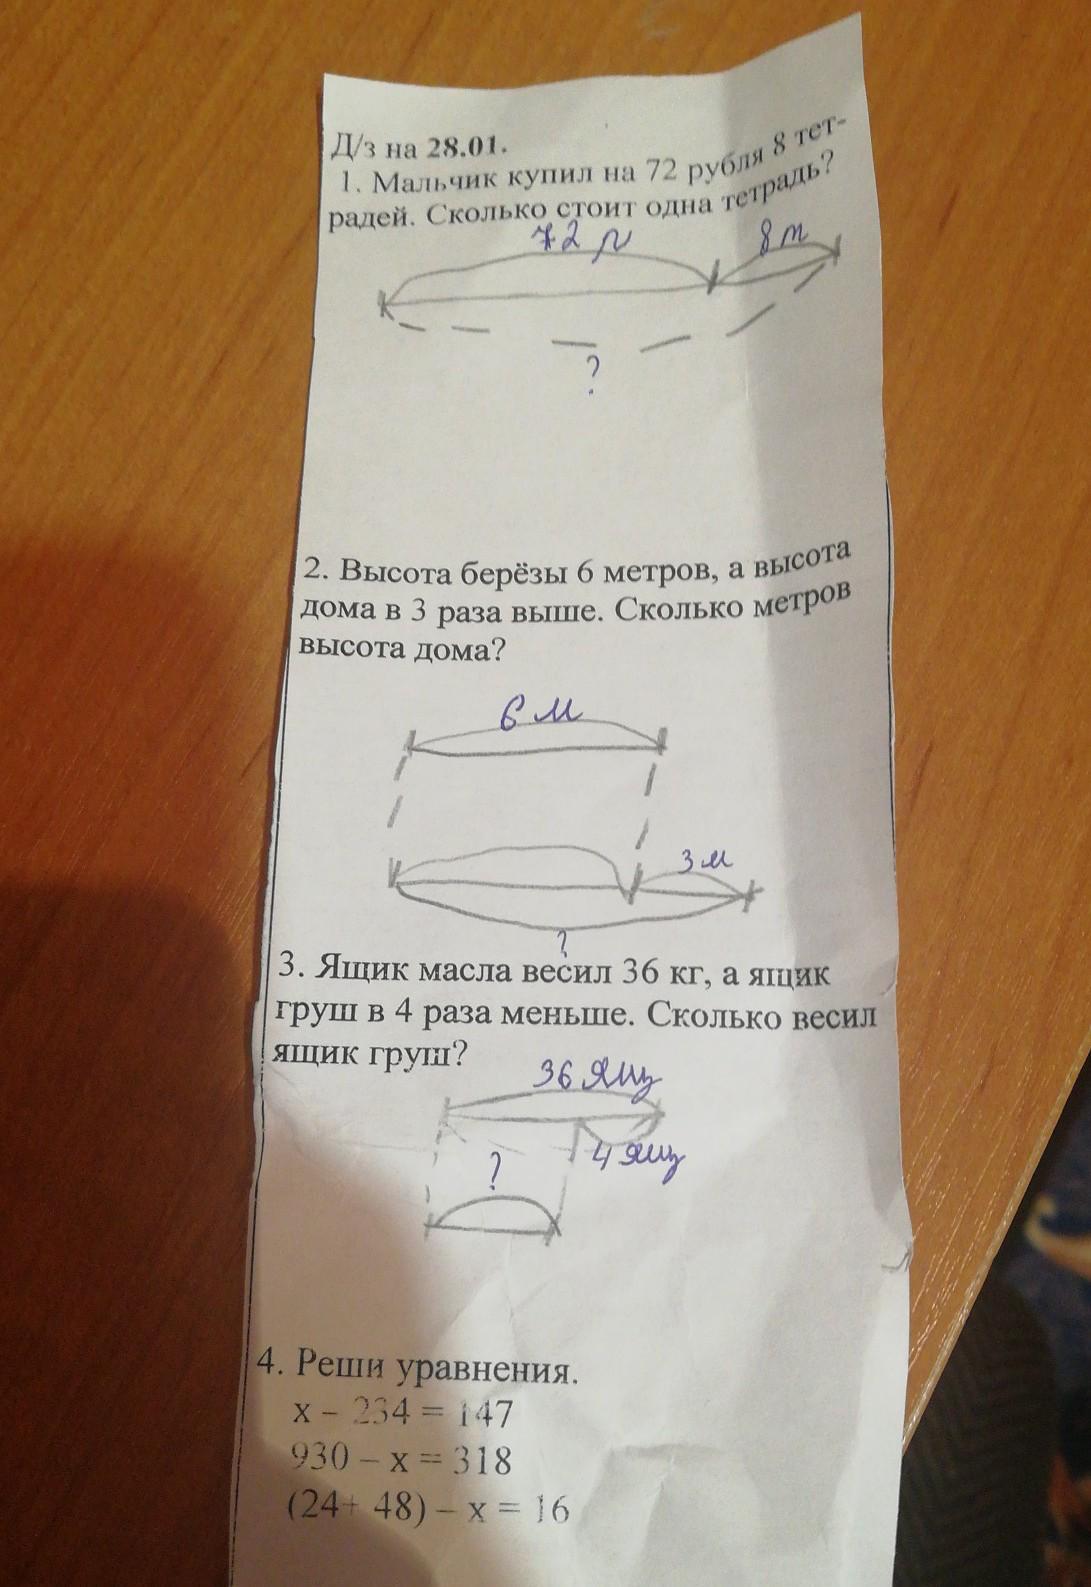 Д/з на 28.01.
1. Мальчик купил на 72 рубля 8 тет-
радей. Сколько стоит одна тетрадь?
72 р 8 т
?
2. Высота берёзы 6 метров, а высота
дома в 3 раза выше. Сколько метров
высота дома?
6 м
3 м
?
3. Ящик масла весил 36 кг, а ящик
груш в 4 раза меньше. Сколько весил
ящик груш?
36 ящ
4 ящ
?
4. Реши уравнения.
х – 234 = 147
930 – х = 318
(24+ 48) – х = 16